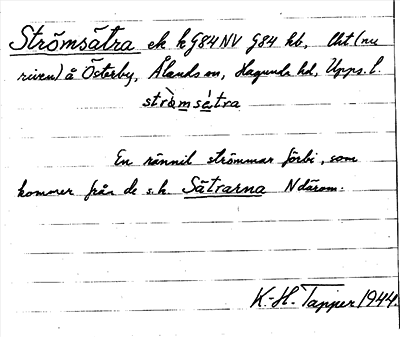 Strömsätra ek k G84NV G84 kb, lht (nu
riven) å Österby, Ålands sn, Hagunda hd, Upps. l.
stròmsátra
En rännil strömmar förbi, som
kommer från de s.k. Sätrarna N därom.
K-H. Tapper 1944.